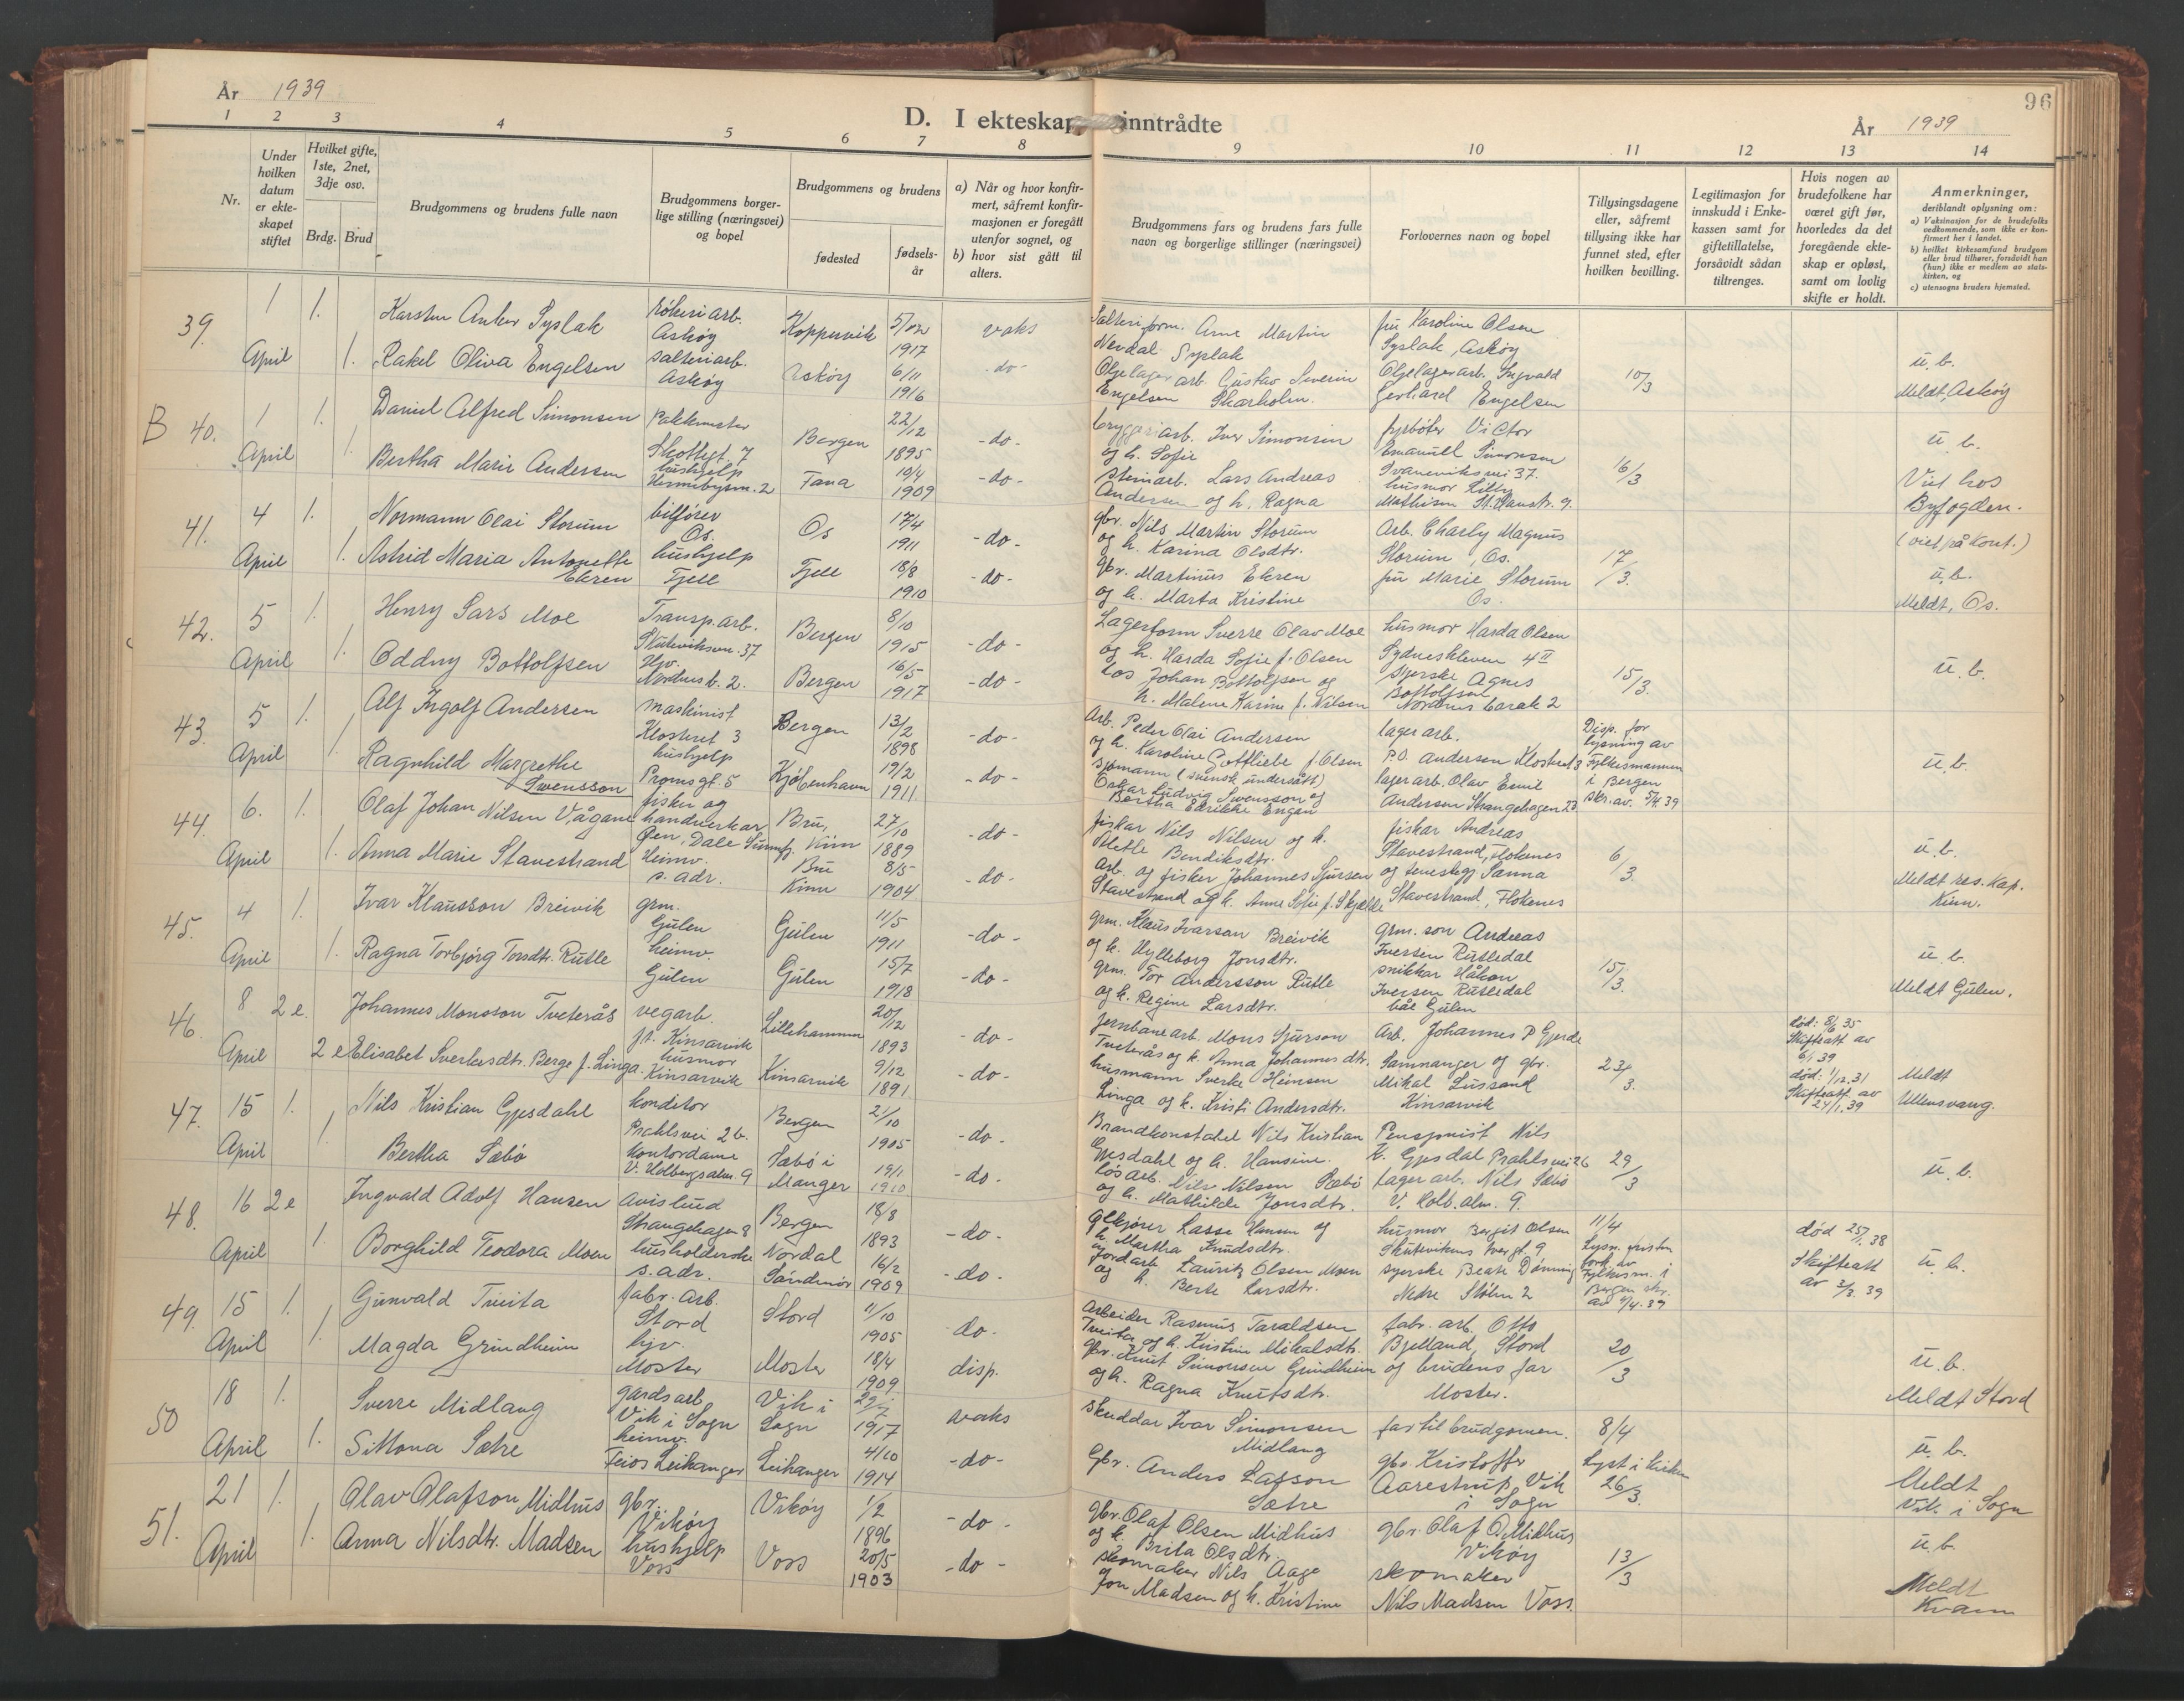 År 1939
D. I ekteskap inntrådte
96
År 1939
1 2 3 4 5 6 7 8 9 10 11 12 13 14
Nr.
Under hvilken datum er ekteskapet stiftet
Hvilket gifte, 1ste, 2net, 3dje osv.
Brdg. Brud
Brudgommens og brudens fulle navn
Brudgommens borgerlige stilling (næringsvei) og bopel
Brudgommens og brudens
fødested
fødselsår
a) Når og hvor konfirmert, såfremt konfirmasjonen er foregått utenfor sognet, og
b) hvor sist gått til alters.
Brudgommens fars og brudens fars fulle navn og borgerlige stillinger (næringsvei)
Forlovernes navn og bopel
Tillysingsdagene eller, såfremt tillysing ikke har funnet sted, efter hvilken bevilling.
Legitimasjon for innskudd i Enkekassen samt for giftetillatelse, forsåvidt sådan tiltrenges.
Hvis nogen av brudefolkene har været gift før, hvorledes da det foregående ekteskap er opløst, samt om lovlig skifte er holdt.
Anmerkninger, deriblandt oplysning om:
a) Vaksinasjon for de brudefolks vedkommende, som ikke er konfirmert her i landet.
b) hvilket kirkesamfund brudgom eller brud tilhører, forsåvidt han (hun) ikke er medlem av statskirken, og
c) utensogns bruders hjemsted.
39. 1 April 1. Karsten Anker Syslak
røkeri arb. Askøy Koppervik 1917 vaks
Salteriform. Arne Martin Nevdal Syslak
fru Karoline Olsen Syslak, Askøy
1. Rakel Oliva Engelsen
salteriarb. Askøy Askøy 6/11 1916 -do-
Oljelager arb. Gustav Severin Engelsen Skarholm.
Oljelagerarb. Ingvald Gerhard Engelsen
10/3
u. b. Meldt, Askøy
B 40. 1 April 1. Daniel Alfred Simonsen
Pakkmester Skottegt. 7 Bergen 22/12 1895 -do-
bryggeriarb. Iver Simonsen og h. Sofie
fyrbøter Victor Emanuell Simonsen Svaneviksvei 37.
1. Bertha Marie Andersen
hushjelp Fana 10/4 1909 -do-
steinarb. Lars Andreas Andersen og h. Ragna
husmor Lilly Mathisen
16/3
u. b. Viet hos Byfogden. (viet på kont.)
41. 4 April 1. Normann Olai Storum
bilfører Os. Os 17/4 1911 -do-
gbr. Nils Martin Storum og h. Karina Olsdtr.
Arb. Charly Magnus Storum, Os.
1. Astrid Maria Antonette Ekren
hushjelp Fjell Fjell 18/8 1910 -do-
gbr. Martinus Ekren og h. Marta Kristine
fru Marie Storum Os.
17/3.
u. b. Meldt, Os.
42. 5 April 1. Henry Lars Moe
Transp. arb. Skuteviksvn. 37 Bergen 8/10 1915 -do-
Lagerform Sverre Olav Moe og h. Harda Sofie f. Olsen
husmor Harda Olsen Sydneskleven 4 II
1. Oddny Bottolfsen
Hjv. Nordnes b. 2. Bergen 16/5 1917 -do-
Los Johan Bottolfsen og h. Malene Karine f. Nilsen
syerske Agnes Bottolfsen Nordnes barak 2
15/3.
u. b.
43. 5 April 1. Alf Ingolf Andersen
maskinist Klosteret 3 Bergen 13/2 1898 -do-
Arb. Peder Olai Andersen og h. Karoline Gottliebe f. Olsen
lager arb. P.O. Andersen Klosteret 3
1. Ragnhild Margrethe Swensson
hushjelp Promsgt. 5 Kjøbenhavn 19/2 1911. -do-
sjømann (svensk undersått) Oskar Ludvig Swensson og Bertha Edrikke Engen
lagerarb. Olav Emil Andersen Strangehagen 23
Disp. for lysning av Fylkesmannen i Bergen skr. av. 5/4 39
u. b.
44. 6. April 1. Olaf Johan Nilsen Vågane
fisker og handverkar Bru, Kinn 27/10 1889 -do-
fiskar Nils Nilsen og h. Aletle Bendiksdtr.
fiskar Andreas Stavestrand, Flokenes
1. Anna Marie Stavestrand
Heimv. s. adr. Bru Kinn 8/5 1904 -do-
arb. og fisker Johannes Sjursen Stavestrand og h. Anne Sofie f. Skjelde
og Sanna Stavestrand, Flokenes
6/3.
u. b. Meldt res. kap. Kinn.
45. 4 April 1. Ivar Klausson Breivik
grm. Gulen Gulen 11/5 1911 -do-
grm. Klaus Ivarson Breivik og h. Hylleborg Jonsdtr.
grm. son Andreas Iversen Rutledal
1. Ragna Torbjørg Torsdtr. Rutle
heimv. Gulen Gulen 15/7 1918 -do-
grm. Tor Andersson Rutle og h. Regine Larsdtr.
snikkar Håkon Iversen Rutledal båe Gulen
15/3.
u. b. Meldt Gulen.
46. 8 April 2 e. Johannes Monsson Tveterås
vegarb. Kinsarvik Lillehammer 20/12 1893 -do-
jernbanearb. Mons Sjurson Tveterås og h. Anna Johannesdtr.
Arb. Johannes P Gjerde Samnanger og gbr.
2 e Elisabet Sverkesdtr. Berge f. Linga
husmor Kinsarvik Kinsarvik 9/12 1891 -do-
husmann Sverke Heinsen Linga og h. Kristi Andersdtr.
Mikal Lussand Kinsarvik
23/3.
død: 8/6 35 Skifteatt av 6/1 39
død: 1/12. 31 Skifteatt av 24/1. 39
Meldt Ullensvang.
47. 15 April 1. Nils Kristian Gjesdahl
konditor Prahlsvei 26. Bergen 21/10 1905 -do-
Brandkonstabel Nils Kristian Gjesdahl og h. Hansine.
Pensjonist Nils K. Gjesdal Prahlsvei 26
1 Bertha Sæbø
kontordame V. Holbergsalm. 9 Sæbø i Manger 19/1 1910 -do-
løsarb. Nils Nilsen Sæbø og h. Mathilde Jonsdtr.
lager arb. Nils Sæbø V. Holb. alm. 9.
29/3
u. b.
48. 16 April 2 e Ingvald Adolf Hansen
avisbud Strangehagen 8 Bergen 18/8 1893 -do-
ølkjører Lasse Hansen og h. Martha Knudsdtr.
husmor Bergit Olsen
1. Borghild Teodora Moen
husholderske s. adr. Nordal Søndmør 16/2 1909 -do-
Jordarb. Lauritz Olsen Moen og h. Berte Larsdtr.
syerske Beate Dønning Nedre Stølen 2
11/4 Lysn. fristen fork. av Fylkesm. i Bergen skr. av 4/4. 39
død 25/1. 38 Skifteatt av 3/3. 39
u. b.
49. 15 April 1. Gunvald Tveita
fabr. arb. Stord Stord 11/10 1905 do.
Arbeider Rasmus Taraldsen Tveita og h. Kristine Mikalsdtr.
fabr. arb. Otto Bjelland, Stord
1. Magda Grindheim
hjv. Moster Moster 18/4 1909. disp.
gbr. Knut Simonsen Grindheim og h. Ragna Knutsdtr.
og brudens far Moster.
20/3
u. b. Meldt Stord
50 18 April 1. Sverre Midlang
gardsarb Vik i Sogn Vik i Sogn 1917 vaks
skreddar Ivar Simonsen Midlang
far til brudgomen.
8/4
1. Sittona Sætre
heimv. Feios Leikanger Leikanger 4/10 1914 -do-
Gbr. Anders Larsson Sætre
gbr. Kristoffer Aarestrup, Vik i Sogn
Lyst i kirken 26/3.
u. b. Meldt Vik i Sogn
51. 21 April 1. Olav Olafson Midhus
gbr. Vikøy Vikøy 1/2 1896 -do-
gbr. Olaf Olsen Midhus og h. Brita Olsdtr.
gbr. Olaf O. Midhus Vikøy
1. Anna Nilsdtr. Madsen
hushjelp Voss Voss 20/5 1903 -do-
skomaker Nils Aage Jon Madsen og h. Kristine
skomaker Nils Madsen Voss.
13/3
u. b. Meldt Kvam